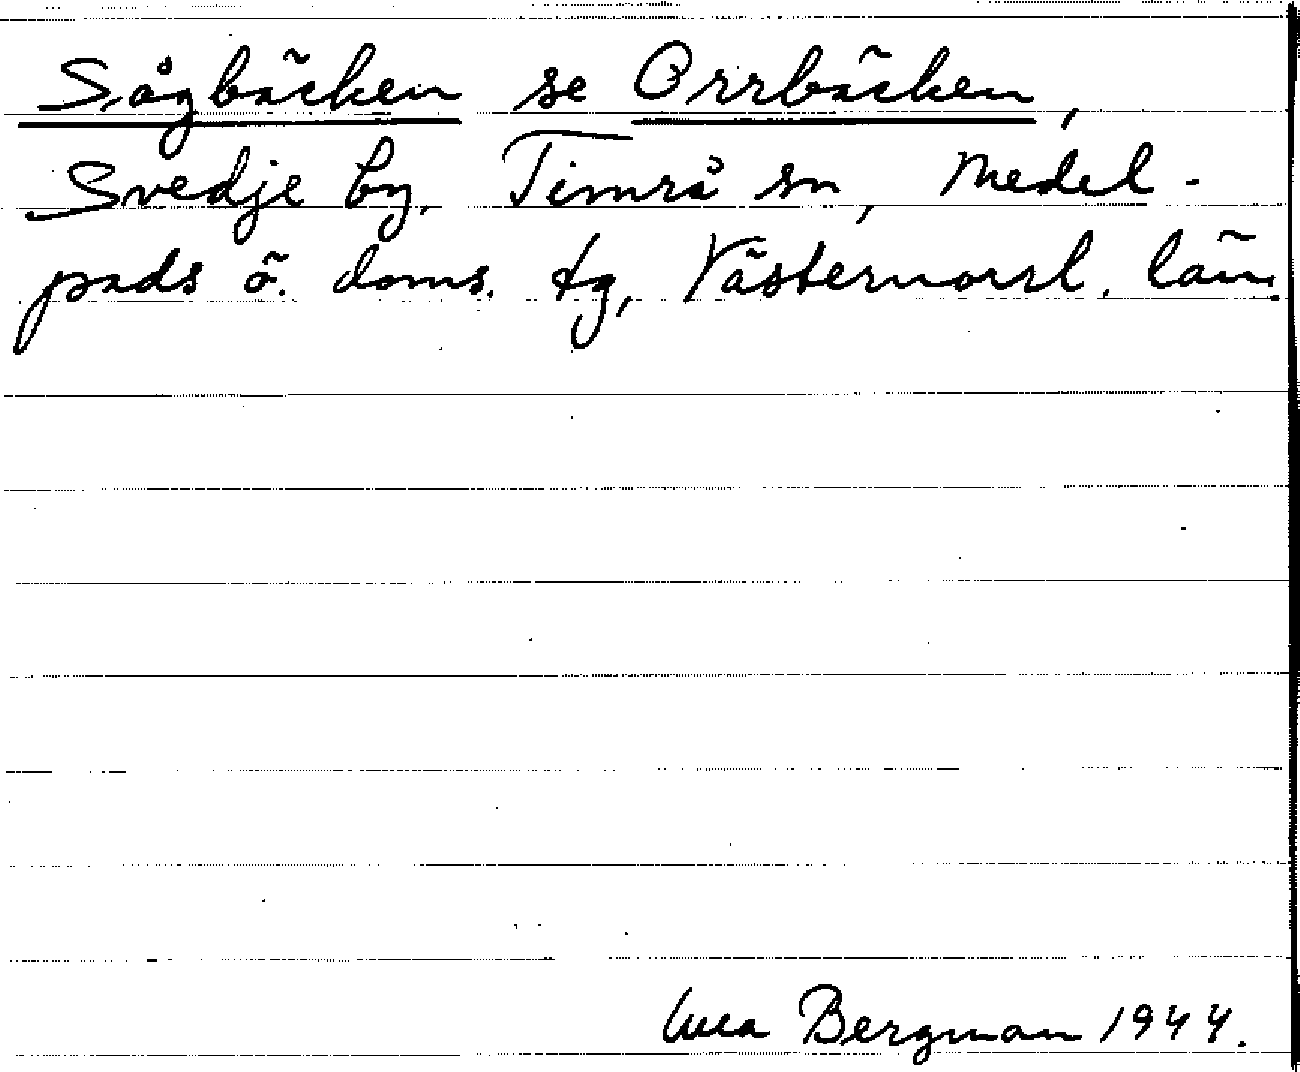 Sågbäcken se Orrbäcken,
Svedje by, Timrå sn, Medel-
pads ö. doms. tg, Västernorrl. län.
Bergman 1944.